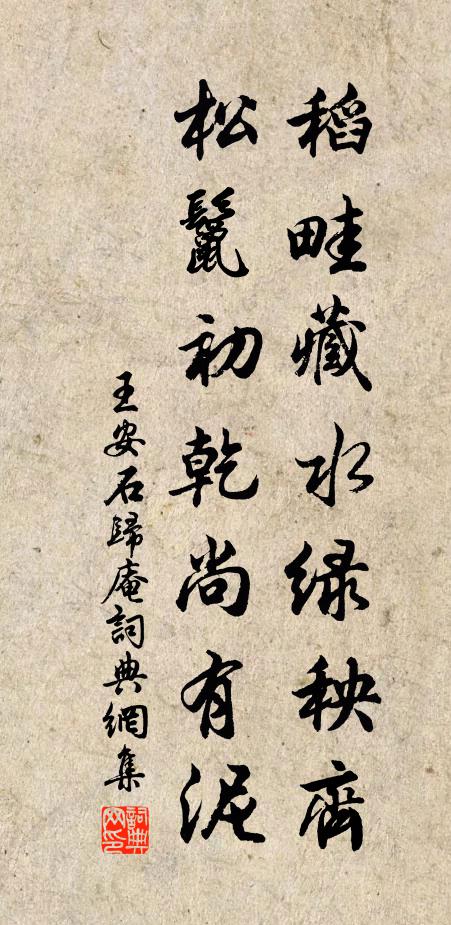 稻畦藏水绿秧齊
松鬣初乾尚有泥
王安石歸庵詞典網集
詞典网印